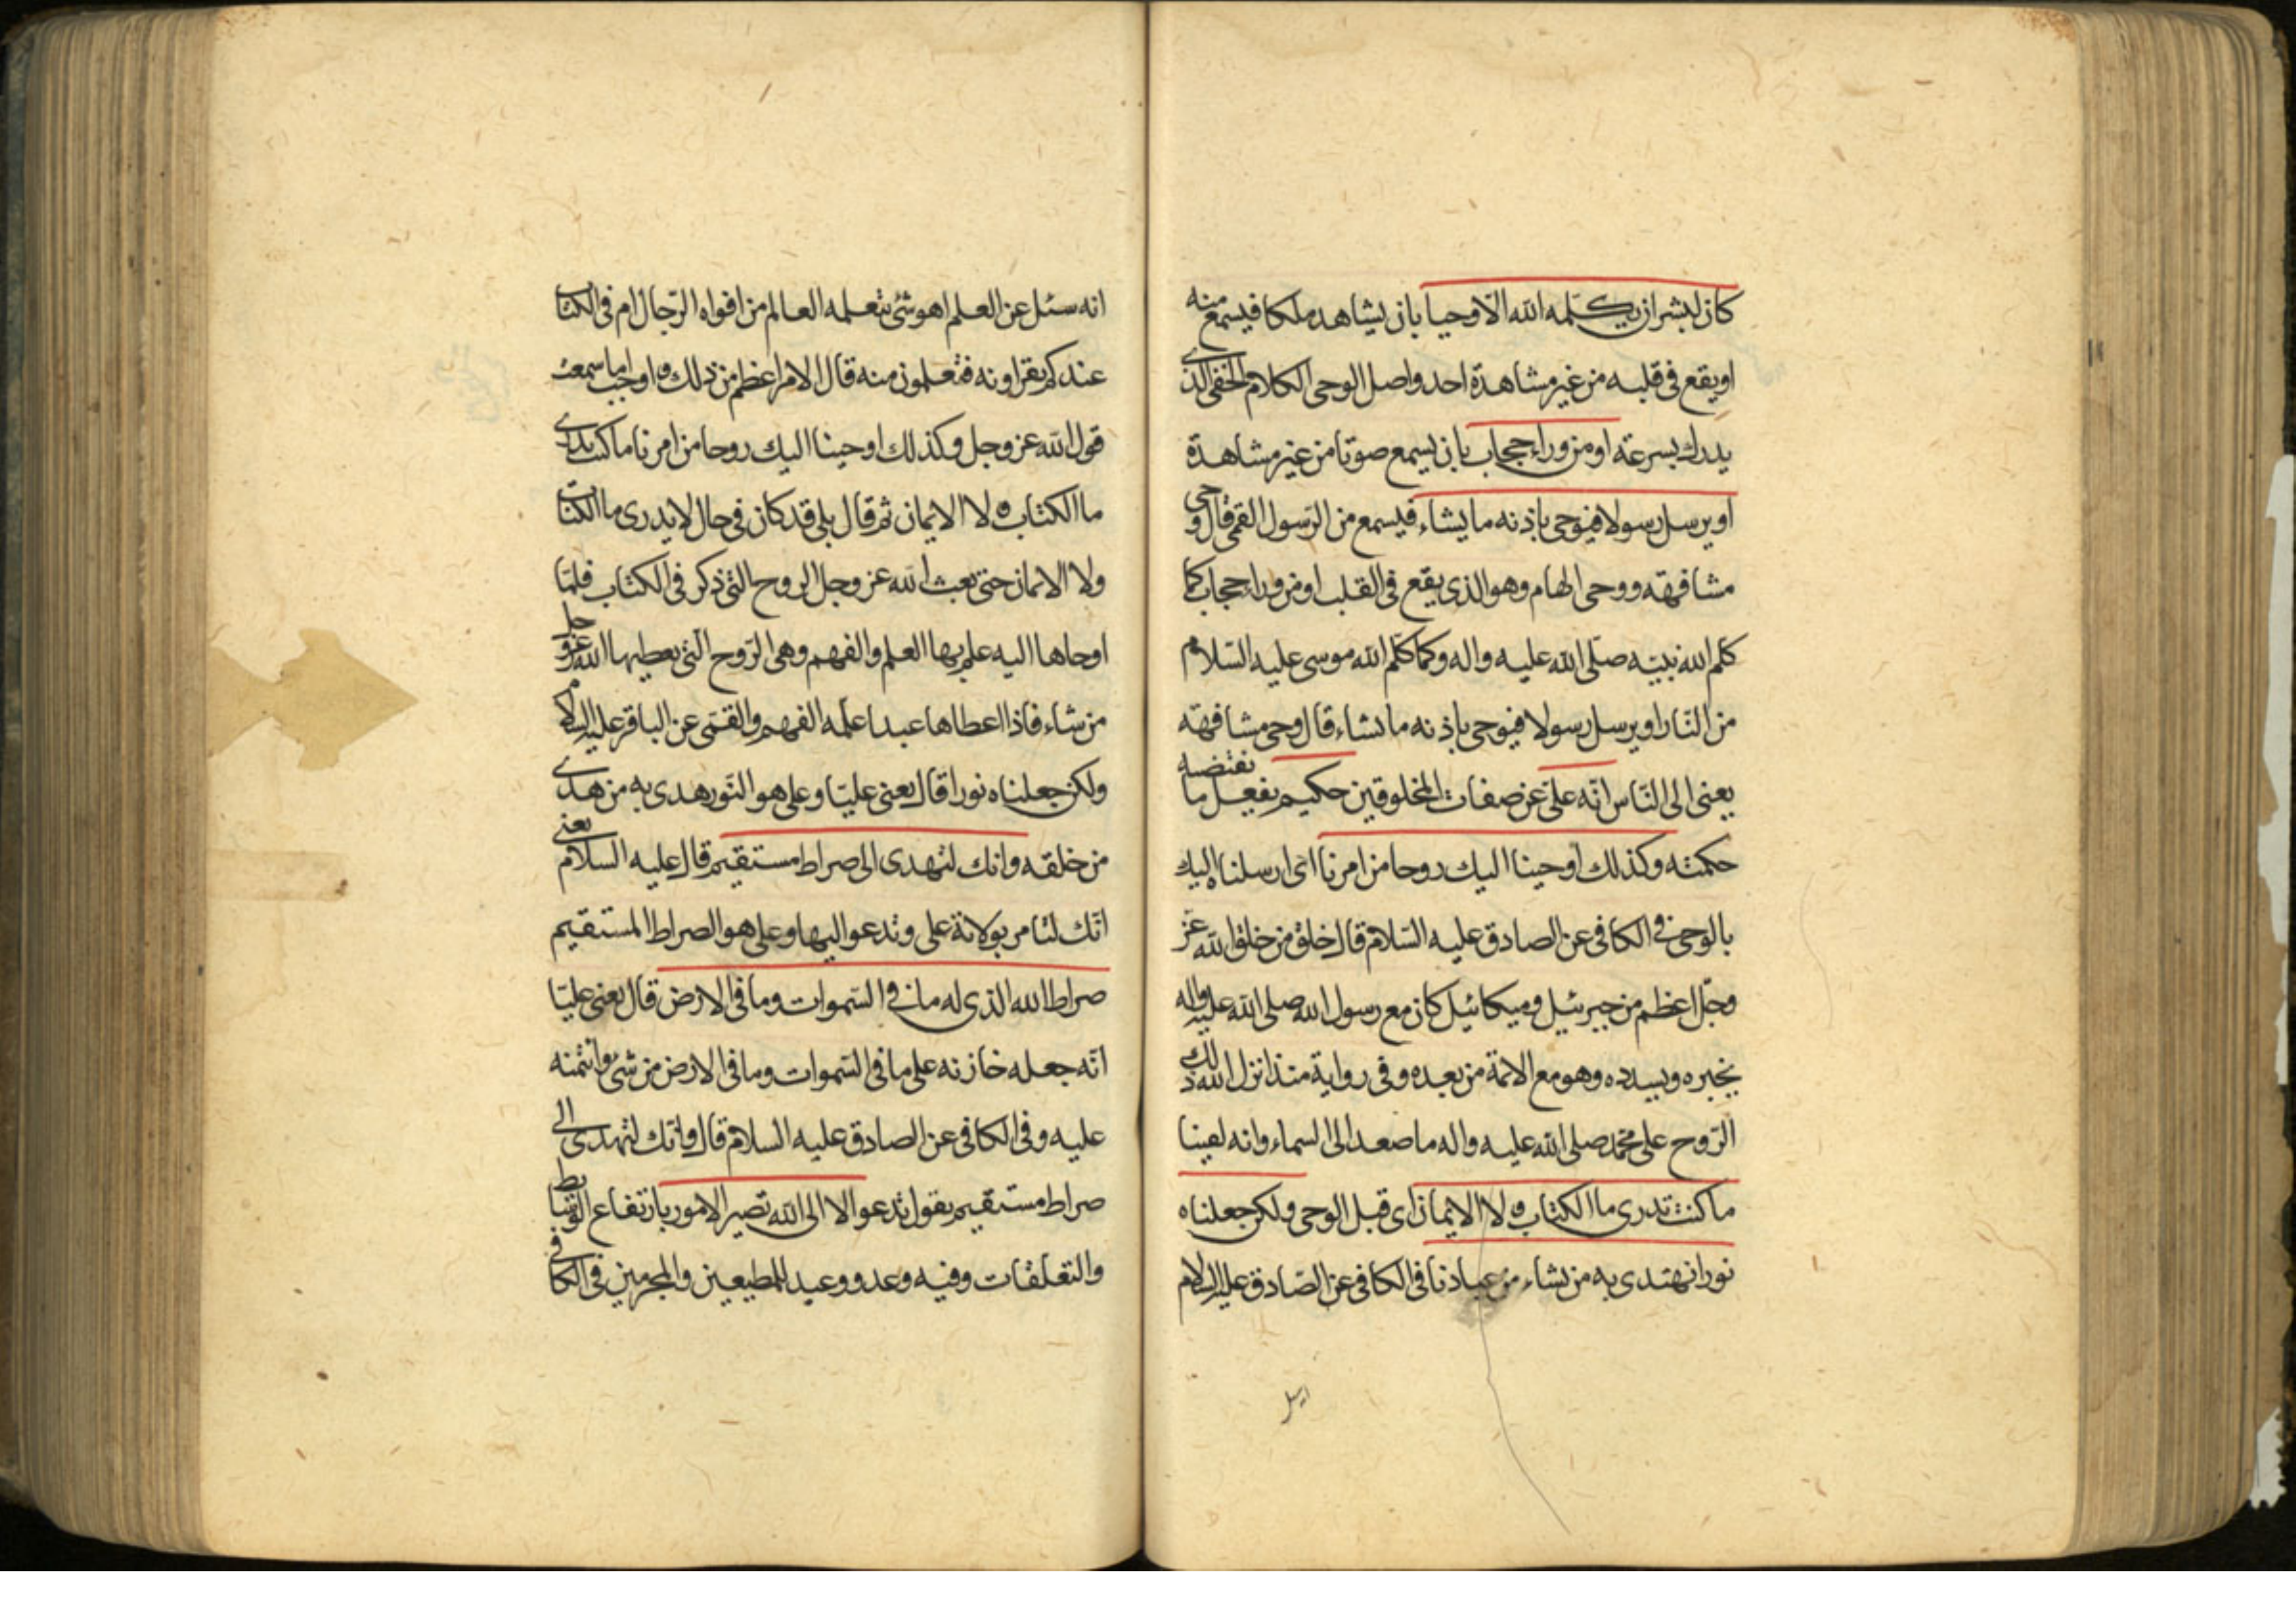 كان لبشر ان يكلمه الله الا وحيا بان يشاهد ملكا فيسمع منه
او يقع فى قلبه من غير مشاهدة احد واصل الوحى الكلام الخفى الذى
يدرك بسرعة او من وراء حجاب بان يسمع صوتا من غير مشاهدة
او يرسل رسولا فيوحى باذنه ما يشاء فيسمع من الرسول القمى قال وحى
مشافهة ووحى الهام وهو الذى يقع فى القلب او من وراء حجاب كما
كلم الله نبيه صلى الله عليه واله وكما كلم الله موسى عليه السلام
من النار او يرسل رسولا فيوحى باذنه ما يشاء قال وحى مشافهة
يعنى الى الناس انه على عن صفات المخلوقين حكيم يفعل ما يقتضيه
حكمته وكذلك اوحينا اليك روحا من امرنا اى ارسلناه اليك
بالوحى فى الكافى عن الصادق عليه السلام قال خلق من خلق الله عز
وجل اعظم من جبرئيل وميكائيل كان مع رسول الله صلى الله عليه واله
يخبره ويسدده وهو مع الائمة من بعده وفى رواية منذ انزل الله ذلك
الروح على محمد صلى الله عليه واله ما صعد الى السماء وانه لفينا
ما كنت تدرى ما الكتاب ولا الايمان اى قبل الوحى ولكن جعلناه
نورا نهتدى به من نشاء من عبادنا فى الكافى عن الصادق عليه السلام
انه سئل عن العلم اهو شئ يتعلمه العالم من افواه الرجال ام فى الكتاب
عندكم يقراونه فتعلمون منه قال الامر اعظم من ذلك واوجب اما سمعت
قول الله عز وجل وكذلك اوحينا اليك روحا من امرنا ما كنت تدرى
ما الكتاب ولا الايمان ثم قال بلى قد كان فى حال لا يدرى ما الكتاب
ولا الايمان حتى بعث الله عز وجل الروح التى ذكر فى الكتاب فلما
اوحاها اليه علم بها العلم والفهم وهى الروح التى يعطيها الله عز وجل
من شاء فاذا اعطاها عبدا علمه الفهم والقمى عن الباقر عليه السلام
ولكن جعلناه نورا قال يعنى عليا وعلى هو النور هدى به من هدى
من خلقه وانك لتهدى الى صراط مستقيم قال عليه السلام يعنى
انك لتامر بولاية على وتدعو اليها وعلى هو الصراط المستقيم
صراط الله الذى له ما فى السموات وما فى الارض قال يعنى عليا
انه جعله خازنه على ما فى السموات وما فى الارض من شئ وائتمنه
عليه وفى الكافى عن الصادق عليه السلام قال وانك لتهدى الى
صراط مستقيم يقول تدعو الا الى الله تصير الامور بارتفاع الوسائط
والتعلقات وفيه وعد ووعيد للمطيعين والمجرمين فى الكافى